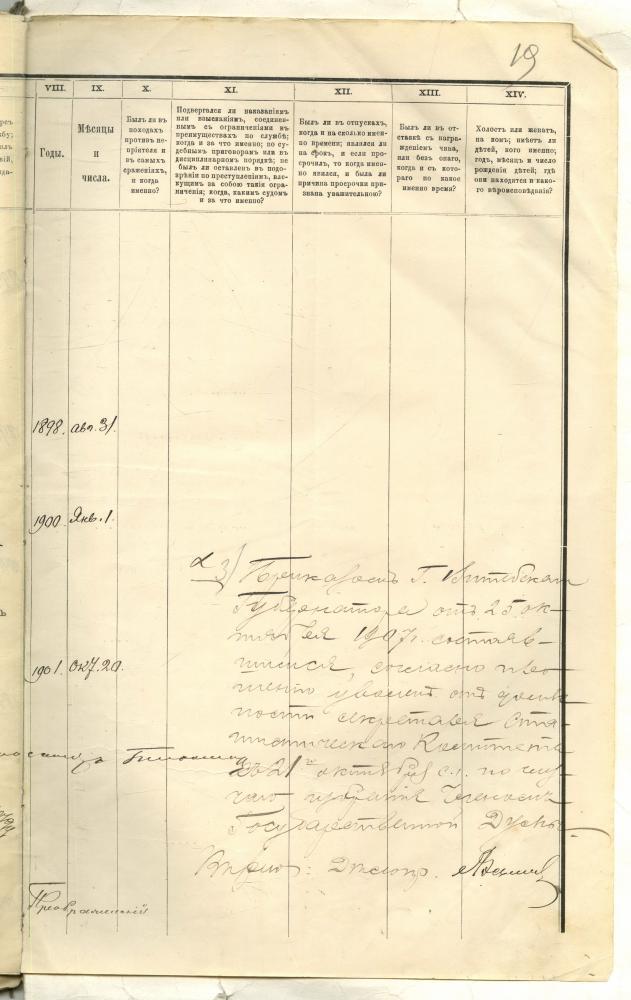 19
VIII.
IX.
X.
XI.
XII.
XIII.
XIV.
Годы.
Мѣсяцы
и
числа.
Былъ ли въ
походахъ
противъ не-
пріятеля и
въ самыхъ
сраженіяхъ,
и когда
именно?
Подвергался ли наказаніямъ
или взысканіямъ, соединен-
нымъ съ ограниченіями въ
преимуществахъ по службѣ;
когда и за что именно; по су-
дебнымъ приговорамъ или въ
дисциплинарномъ порядкѣ; не
былъ ли оставленъ въ подо-
зрѣніи по преступленіямъ, вле-
кущимъ за собою такія огра-
ниченія; когда, какимъ судомъ
и за что именно?
Былъ ли въ отпускахъ,
когда и на сколько имен-
но времени; являлся ли
на срокъ, и если про-
срочилъ, то когда имен-
но явился, и была ли
причина просрочки при-
знана уважительною?
Былъ ли въ от-
ставкѣ съ награ-
жденіемъ чина,
или безъ онаго,
когда и съ кото-
раго по какое
именно время?
Холостъ или женатъ,
на комъ; имѣетъ ли
дѣтей, кого именно;
годъ, мѣсяцъ и число
рожденія дѣтей; гдѣ
они находятся и како-
го вѣроисповѣданія?
1898. авг. 31.
1900. Янв. 1.
1901. окт. 20.
3) Приказомъ Г. Витебскаго
Губернатора отъ 25 ок-
тября 1907 г. состояв-
шимся, согласно про-
шенію уволенъ отъ долж-
ности секретаря Ста-
тистическаго Комитета
съ 21 октября с.г. по слу-
чаю избранія Членомъ
Государственной Думы.
Вѣрно:
Преображенскій